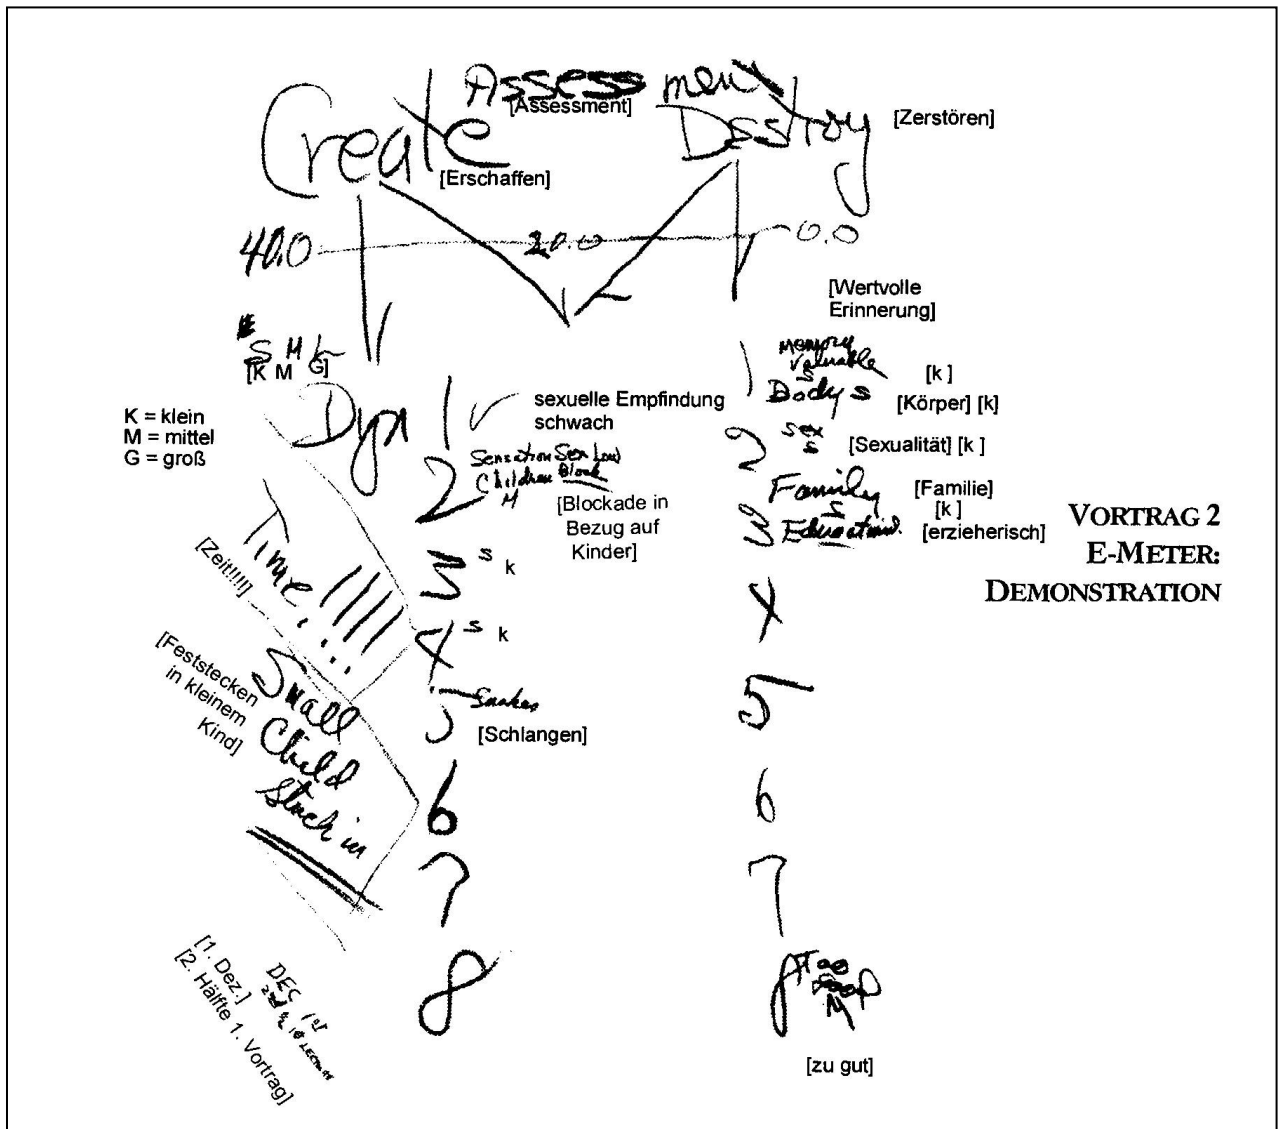 Assessment
[Assessment]
Create
[Erschaffen]
Destroy
[Zerstören]
40.0
20.0
0.0
[Wertvolle
Erinnerung]
S M L
[K M G]
K = klein
M = mittel
G = groß
Dyn 1
sexuelle Empfindung
schwach
2 Sensation Sex Low
Children Block
M
[Blockade in
Bezug auf
Kinder]
3 s k
4 s k
5 Snakes
[Schlangen]
6
7
8
Time!!!!
[Zeit!!!!]
Small
Child
Stuck in
[Feststecken
in kleinem
Kind]
DEC 1st
[1. Dez.]
[2. Hälfte 1. Vortrag]
1 Memory
Valuable
s
[k]
Bodys
[Körper] [k]
2 sex
s
[Sexualität] [k]
Family
[Familie]
s
[k]
3 Educational.
[erzieherisch]
4
5
6
7
8 Too
Good
M
[zu gut]
VORTRAG 2
E-METER:
DEMONSTRATION